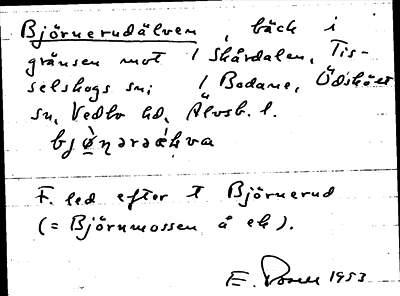 Björnerudälven, bäck i
gränsen mot / Skårdalen, Tis-
selskogs sn; / Bodane, Ödskölt
sn, Vedbo hd, Älvsb. l.
F. led efter t Björnerud
(= Björnmossen å ek).
E. 1953